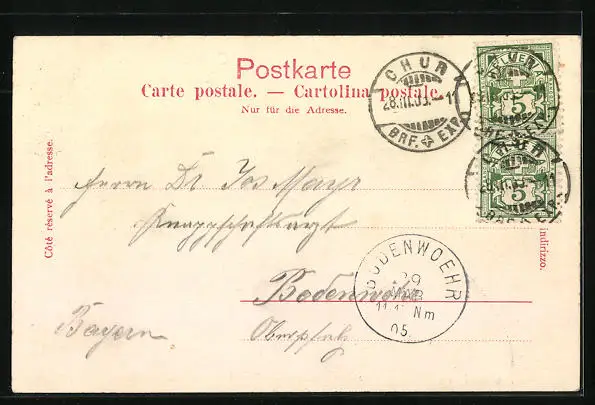 Postkarte
Carte postale. — Cartolina postale.
Nur für die Adresse.
Côté réservé à l'adresse.
indirizzo.
CHUR
28.III.05.–11
BRF. EXP.
5
CHUR
5
Herrn Dr Jos Mayr
Knappschaftsarzt
Bodenwöhr
Oberpfalz
Bayern
BODENWOEHR
29
MAR
Nm
05